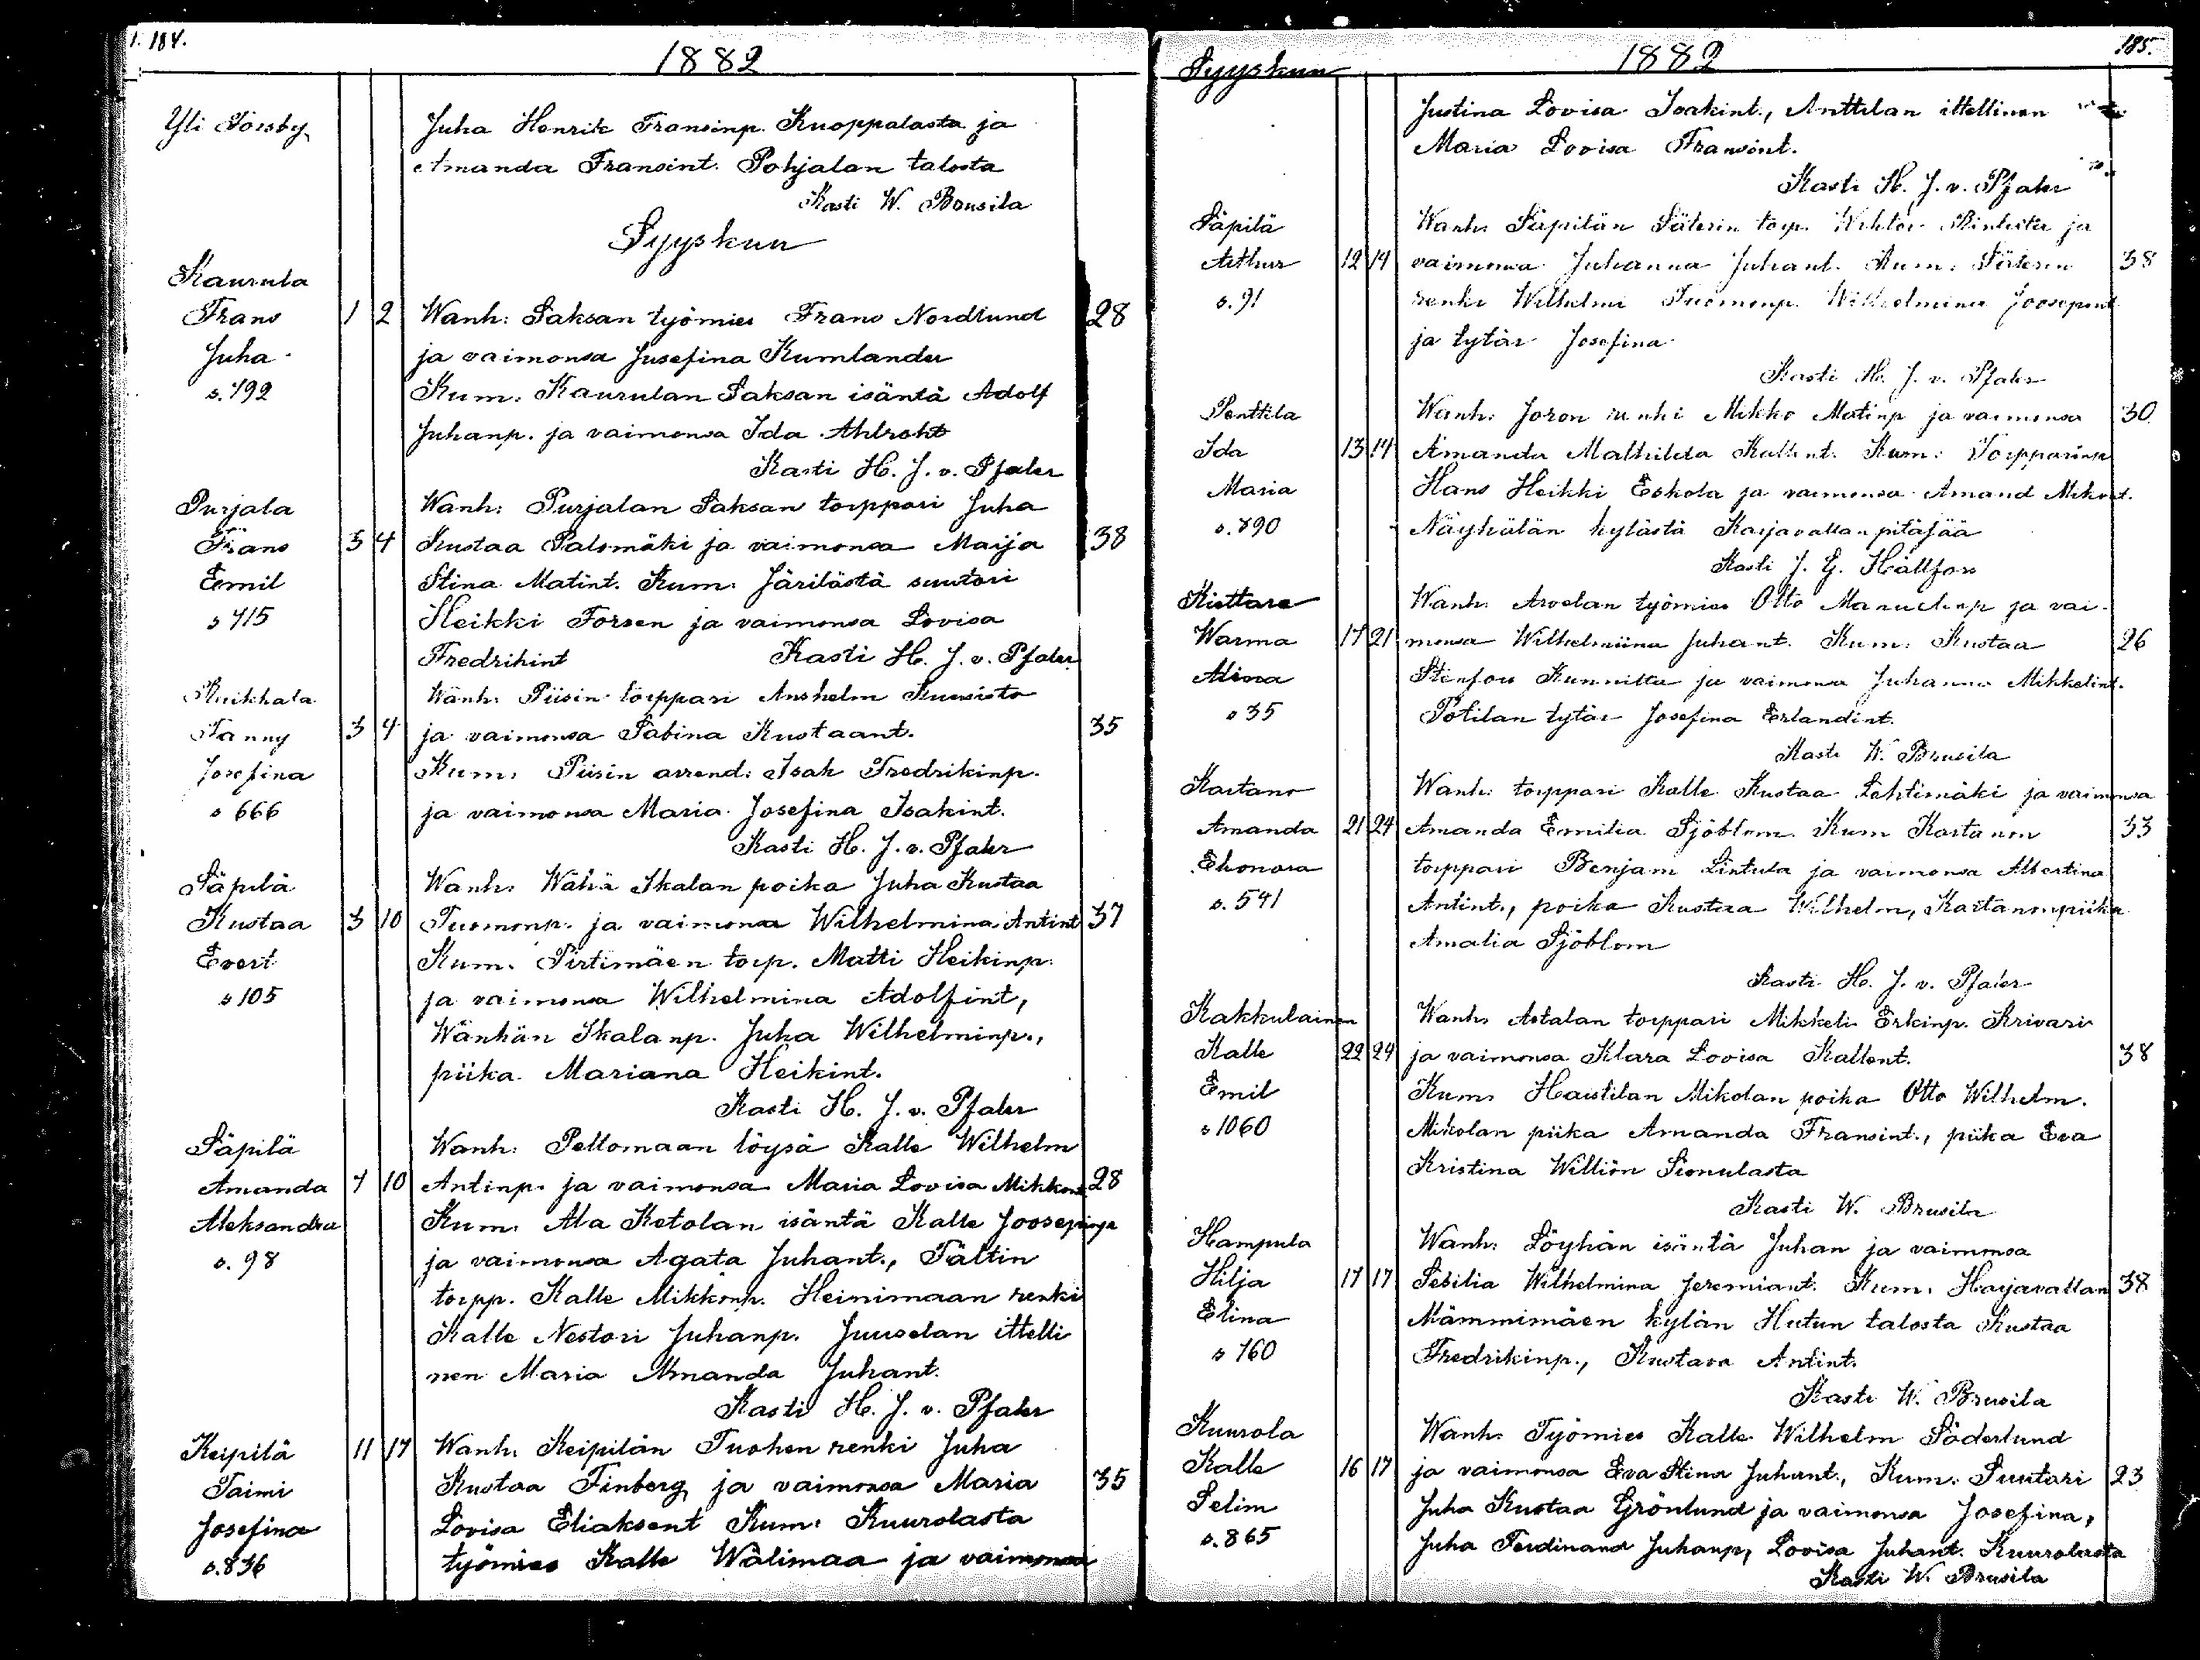 184.
1882
Yli Torsby
Juha Henrik Fransinp. Kuoppalasta ja
Amanda Fransint. Pohjalan talosta
Kasti W. Brusila
Syyskuu
Kaurula
Frans 1 2 Wanh: Saksan työmies Frans Nordlund 28
Juha ja vaimonsa Jusefina Kumlander
s. 792 Kum. Kaurulan Saksan isäntä Adolf
Juhanp. ja vaimonsa Ida Ahlroht
Kasti H. J. v. Pfaler
Purjala Wanh: Purjalan Saksan torppari Juha
Frans 3 4 Kustaa Palomäki ja vaimonsa Maija 38
Emil Stina Matint. Kum: Järilästä suutari
s 715 Heikki Forsen ja vaimonsa Lovisa
Fredrikint Kasti H. J. v. Pfaler
Kuikkala Wanh: Piisin torppari Anshelm Kuusisto
Fanny 3 4 ja vaimonsa Sabina Kustaant. 35
Josefina Kum: Piisin arrend: Isak Fredrikinp.
s 666 ja vaimonsa Maria Josefina Isakint.
Kasti H. J. v. Pfaler
Säpilä Wanh: Wähä Skalan poika Juha Kustaa
Kustaa 3 10 Tuomonp. ja vaimonsa Wilhelmina Antint 37
Evert Kum. Pirtimäen torp. Matti Heikinp.
s 105 ja vaimonsa Wilhelmina Adolfint,
Wänhän Skalanp. Juha Wilhelminp.,
piika Mariana Heikint.
Kasti H. J. v. Pfaler
Säpilä Wanh: Peltomaan löysä Kalle Wilhelm
Amanda 7 10 Antinp. ja vaimonsa Maria Lovisa Mikkont 28
Aleksandra Kum. Ala Ketolan isäntä Kalle Joosepinp
s. 98 ja vaimonsa Agata Juhant., Tältin
torpp. Kalle Mikkonp. Heinimaan renki
Kalle Nestori Juhanp. Juuselan ittelli
nen Maria Amanda Juhant.
Kasti H. J. v. Pfaler
Keipilä 11 17 Wanh: Keipilän Tuohen renki Juha
Taimi Kustaa Finberg ja vaimonsa Maria 35
Josefina Lovisa Eliaksent Kum: Kuurolasta
s. 836 työmies Kalle Wälimaa ja vaimonsa
185.
Syyskuu 1882
Justina Lovisa Joakint., Anttilan ittellinen
Maria Lovisa Fransint.
Kasti H. J. v. Pfaler
Säpilä Wanh: Säpilän Säterin torp. Wihtor ja
Arthur 12 14 vaimonsa Juhanna Juhant. Kum: Säterin 38
s. 91 renki Wilhelmi Tuomonp. Wilhelmina Joosepint
ja tytär Josefina
Kasti H. J. v. Pfaler
Penttila Wanh: Joron renki Mikko Matinp ja vaimonsa 30
Ida 13 14 Amanda Mathilda Kallent. Kum: Torpparinp
Maria Hans Heikki Eskola ja vaimonsa Amand Mikont.
s. 890 Näyhälän kylästä Karjavallan pitäjää
Kasti J. G. Hällfors
Kiettare Wanh: Arvelan työmies Otto Manuelinp ja vai-
Warma 17 21 monsa Wilhelmiina Juhant. Kum: Kustaa 26
Alina Stenfors Kunnilta ja vaimonsa Juhanna Mikkelint.
s 35 Potilan tytär Josefina Erlandint.
Kasti W. Brusila
Kartano Wanh: torppari Kalle Kustaa Lehtimäki ja vaimonsa
Amanda 21 24 Amanda Emilia Sjöblom. Kum Kartanon 33
Ehonora torppari Benjam Lintula ja vaimonsa Albertina
s. 541 Antint., poika Kustaa Wilhelm, Kartanonpiika
Amalia Sjöblom
Kasti H. J. v. Pfaler
Kakkulainen Wanh: Astalan torppari Mikkeli Erkinp. Krivari
Kalle 22 24 ja vaimonsa Klara Lovisa Kallent. 38
Emil Kum: Haistilan Mikolan poika Otto Wilhelm.
s 1060 Mikolan piika Amanda Fransint., piika Eva
Kristina Williön Sionulasta
Kasti W. Brusila
Hampula Wanh: Löyhän isäntä Juhan ja vaimonsa
Hilja 17 17 Sesilia Wilhelmina Jeremiant. Kum: Harjavallan 38
Elina Mämmimäen kylän Hutun talosta Kustaa
s 160 Fredrikinp., Kustava Antint.
Kasti W. Brusila
Kuurola Wanh: Työmies Kalle Wilhelm Söderlund
Kalle 16 17 ja vaimonsa Eva Stina Juhant., Kum: Suutari 23
Selim Juha Kustaa Grönlund ja vaimonsa Josefina,
s. 865 Juha Ferdinand Juhanp, Lovisa Juhant. Kuurolasta
Kasti W. Brusila